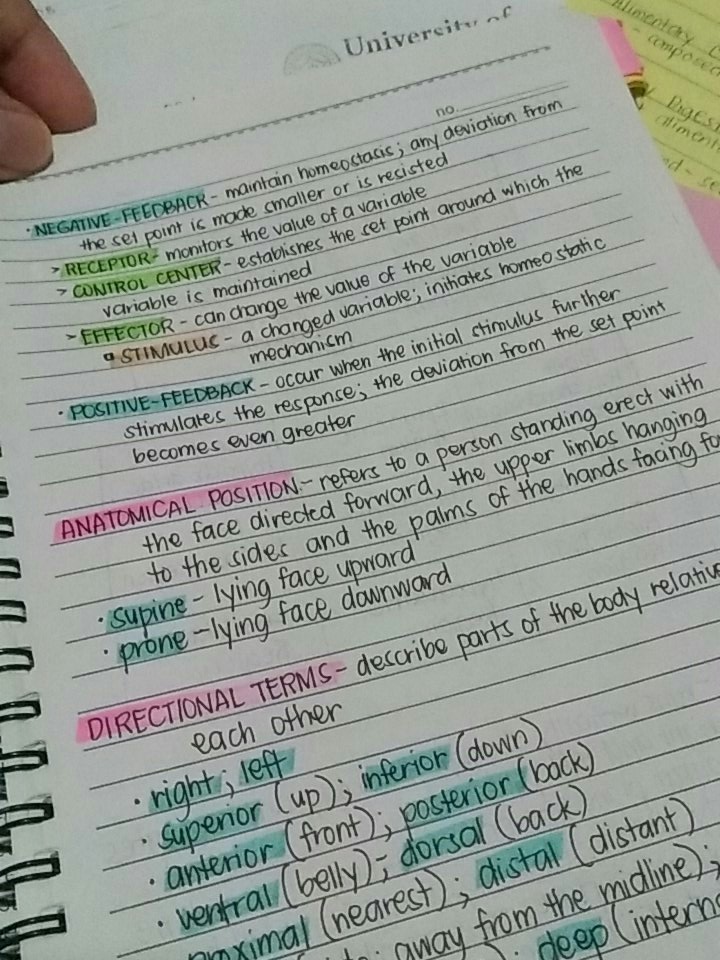 University of
no.
· NEGATIVE-FEEDBACK - maintain homeostasis; any deviation from
the set point is made smaller or is resisted
> RECEPTOR - monitors the value of a variable
> CONTROL CENTER - establishes the set point around which the
variable is maintained
> EFFECTOR - can change the value of the variable
STIMULUS - a changed variable; initiates homeostatic
mechanism
· POSITIVE-FEEDBACK - occur when the initial stimulus further
stimulates the response; the deviation from the set point
becomes even greater
ANATOMICAL POSITION - refers to a person standing erect with
the face directed forward, the upper limbs hanging
to the sides and the palms of the hands facing
· supine - lying face upward
· prone - lying face downward
DIRECTIONAL TERMS - describe parts of the body relative
each other
· right; left
· superior (up); inferior (down)
· anterior (front); posterior (back)
· ventral (belly); dorsal (back)
proximal (nearest); distal (distant)
away from the midline);
deep (intern
Alimentary
- compose
Diges
aliment